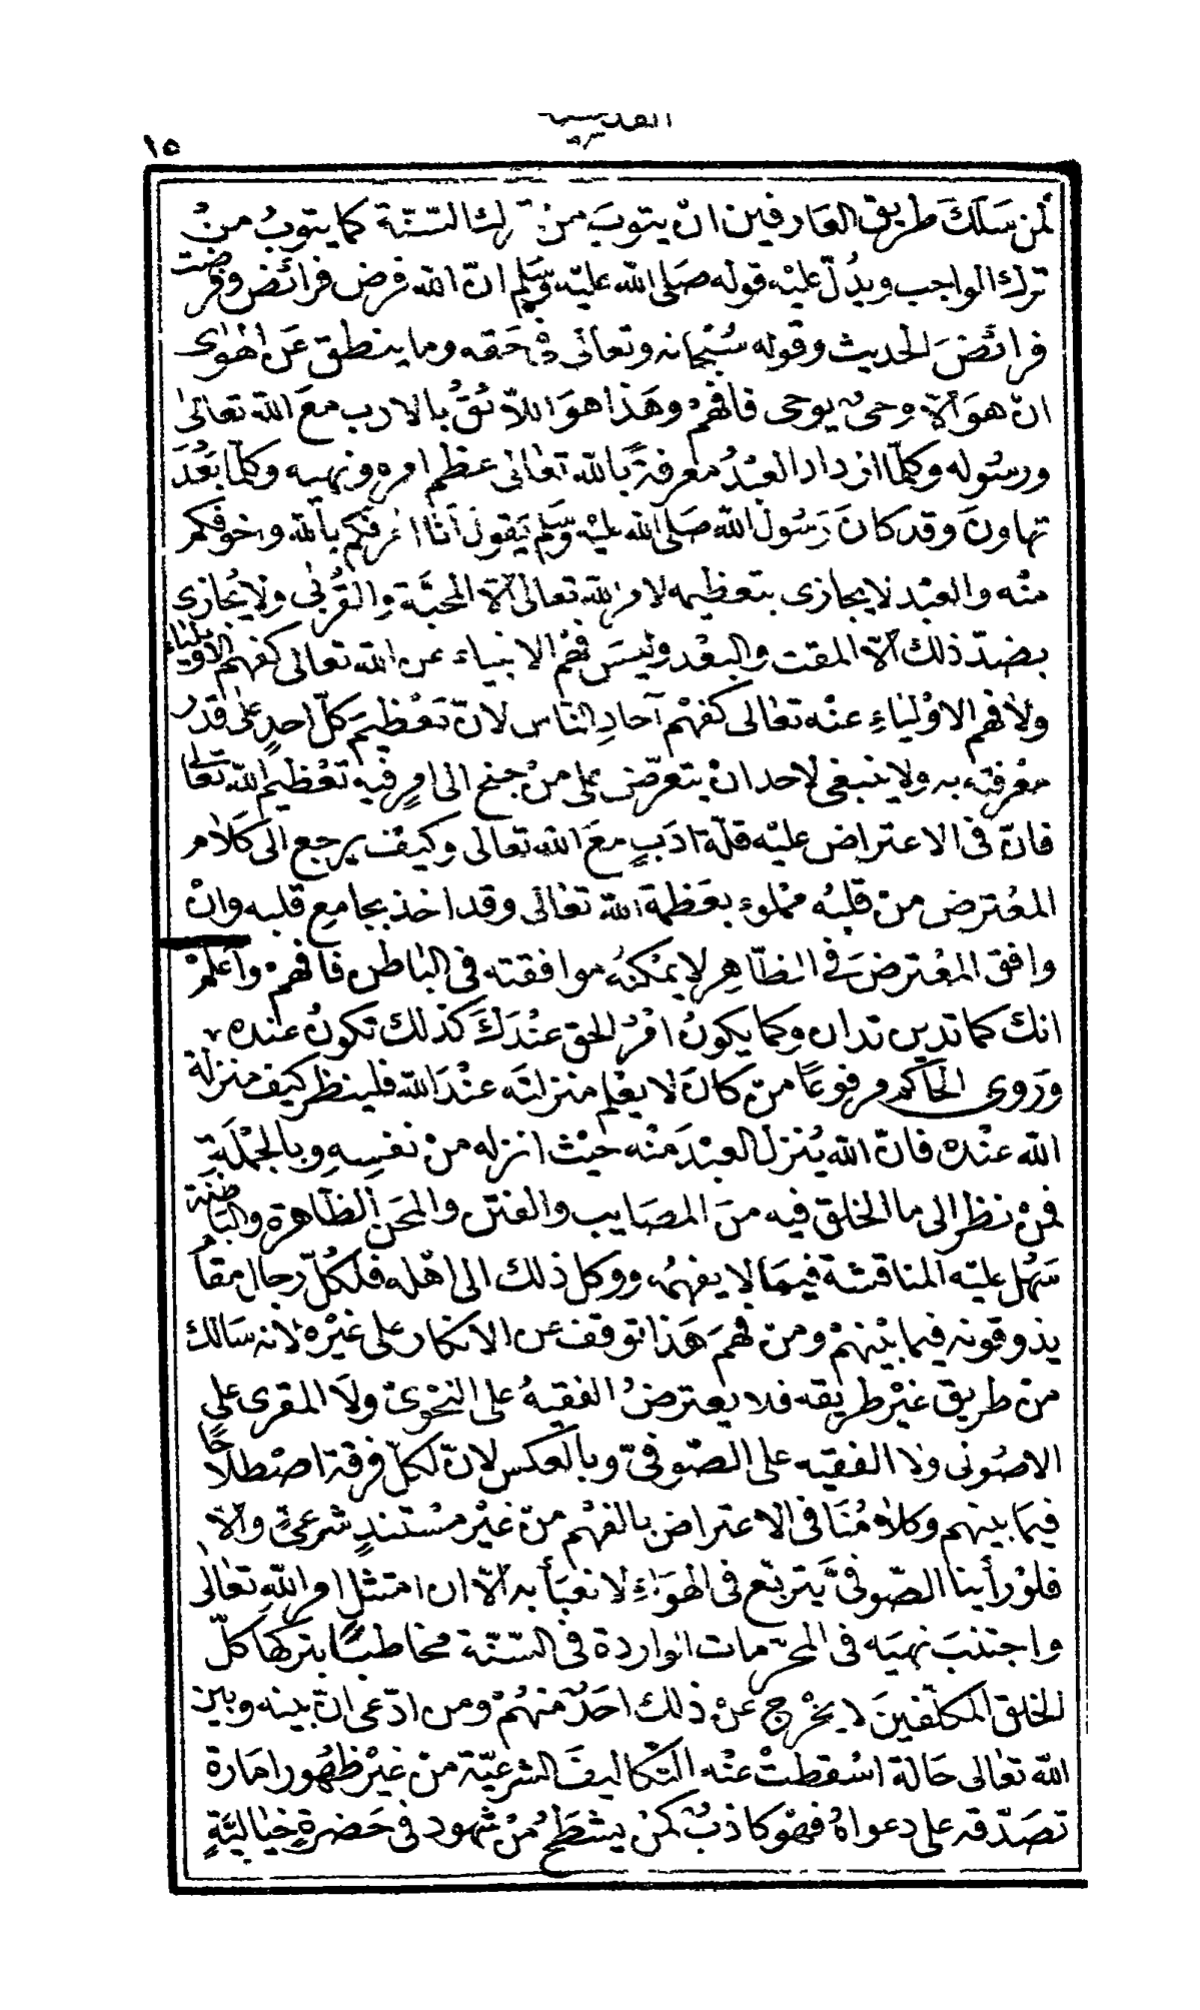 القدسية
١٥
لمن سَلكَ طريق العارفين ان يتوبَ من ترك السّنّة كما يتوبُ منْ
ترك الواجب ويدُلّ عليْه قوله صَلى الله عليه وسَلم انّ الله فرض فرائض وفرضت
فرائضَ الحديث وقوله سُبْحانه وتعالى فى حَقه وما ينطق عَن الهْوى
ان هوَ الاّ وحىٌ يوحى فافهمْ وهَذا هوَ اللاّئقُ بالادب معَ الله تعالىٰ
ورسُوله وكلّما ازداد العبْدُ معرفةً بالله تعٰالى عظم امره ونهيه وكلّما بَعُدَ
تهاونَ وقد كانَ رَسُول الله صَلى الله عليْه وسَلم يَقول أنا اعرَفكم بالله واخوفكم
منْه والعبْد لا يجازى بتعظيمه لامر الله تعالى الاّ المحبَّة والقُرْبٰى ولا يُجازى
بضدّ ذلك الاّ المقت والبعْد وليسَ فهْم الانبياء عن الله تعالى كفهم الاولياء
ولا فهم الاوْلياءِ عنْه تعٰالى كفهْم آحادِ النّاس لانّ تعْظيمَ كلّ احدٍ علىٰ قدْر
معْرفته به ولا ينبغى لاحد انْ يتعرّض على منْ جنح الى امرٍ فيه تعْظيم الله تعٰالى
فانّ فى الاعتراض عليْه قلّة ادَبٍ معَ الله تعالى وكيْف يرجع الى كَلام
المعْترض منْ قلبُه مملوء بعَظمة الله تعٰالى وقد اخذ بمجامع قلبه وانْ
وافق المعْترضَ فى الظّاهِر لا يمْكنهُ موافقته فى البٰاطن فافهمْ واعلمْ
انك كما تدين تدان وكما يكونُ امْرُ الحق عنْدَكَ كذلك تكونُ عنده
ورَوى الحاكم مرفوعًا منْ كانَ لا يعْلم منزلته عنْدَ الله فلينظر كيف منزلة
الله عنْده فانّ الله يُنزل العبْدَ منْه حيْث انزله منْ نفسِهِ وبالجْملَةِ
فمنْ نظر الى ما الخلق فيه منَ المصايب والفتن والمحَن الظّاهرة والبَاطنَة
سَهُل عليْه المناقشة فيمَا لا يفهمُه ووكل ذلك الى اهْله فلكُلّ رجال مقاٌم
يذوقونه فيما بيْنهمْ ومنْ فهمَ هَذا توقف عن الانكار على غيْره لانه سَالك
منْ طريق غيْر طريقه فلا يعترضُ الفقيهُ على النحْوىّ ولا المقرى على
الاصُولى ولا الفقيه على الصّوفىّ وبالعكس لانّ لكلّ فرقة اصْطلاحًا
فيمَا بينهم وكلامُنَا فى الاعتراض بالفهْم منْ غيْر مسْتندٍ شرعىّ والاّ
فلوْ رأينا الصّوفىَّ يتربّع فى الهوَاءِ لا نعبَأ به الاّ ان امتثل امر اللهِ تعَالىٰ
واجتنبَ نهيَه فى المحرّمات الواردة فى السّنّة مخاطبًا بتركها كلّ
الخلق المكلّفينَ لا يخْرج عنْ ذلك احَدٌ منهُمْ ومن ادّعى انّ بينه وبين
الله تعٰالى حَالة اسْقطتْ عنْه التّكاليفَ الشرعيّة منْ غيْر ظهُور امَارة
تصَدّقه على دعواهُ فهوَ كاذبٌ كمنْ يشطَحُ منْ شهود فى حَضرةٍ خيٰاليَّةٍ